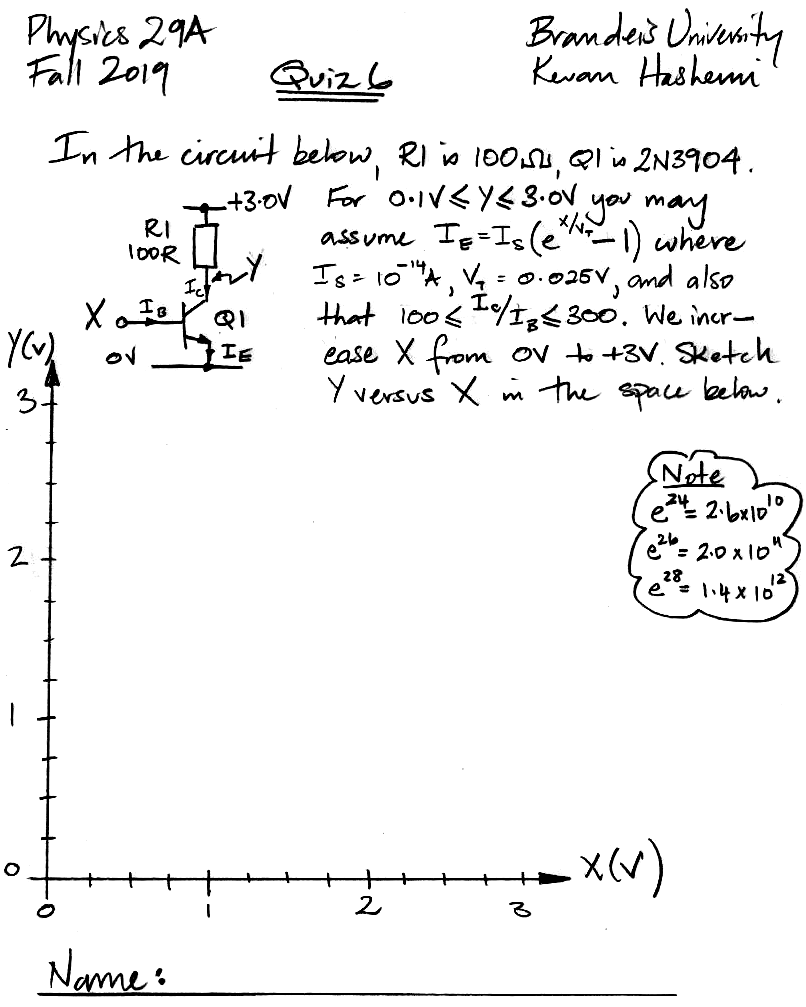 Physics 29A
Fall 2019
Quiz 6
Brandeis University
Kevan Hashemi
In the circuit below, R1 is 100Ω, Q1 is 2N3904.
+3.0V
R1
100R
Ic
Y
X
IB
Q1
0V
IE
For 0.1V ≤ Y ≤ 3.0V you may
assume IE = Is(e^X/VT - 1) where
Is = 10^-14A, VT = 0.025V, and also
that 100 ≤ Ic/IB ≤ 300. We incr-
ease X from 0V to +3V. Sketch
Y versus X in the space below.
Y(V)
3
2
1
0
Note
e^24 = 2.6x10^10
e^26 = 2.0 x 10^11
e^28 = 1.4 x 10^12
X(V)
0 1 2 3
Name: